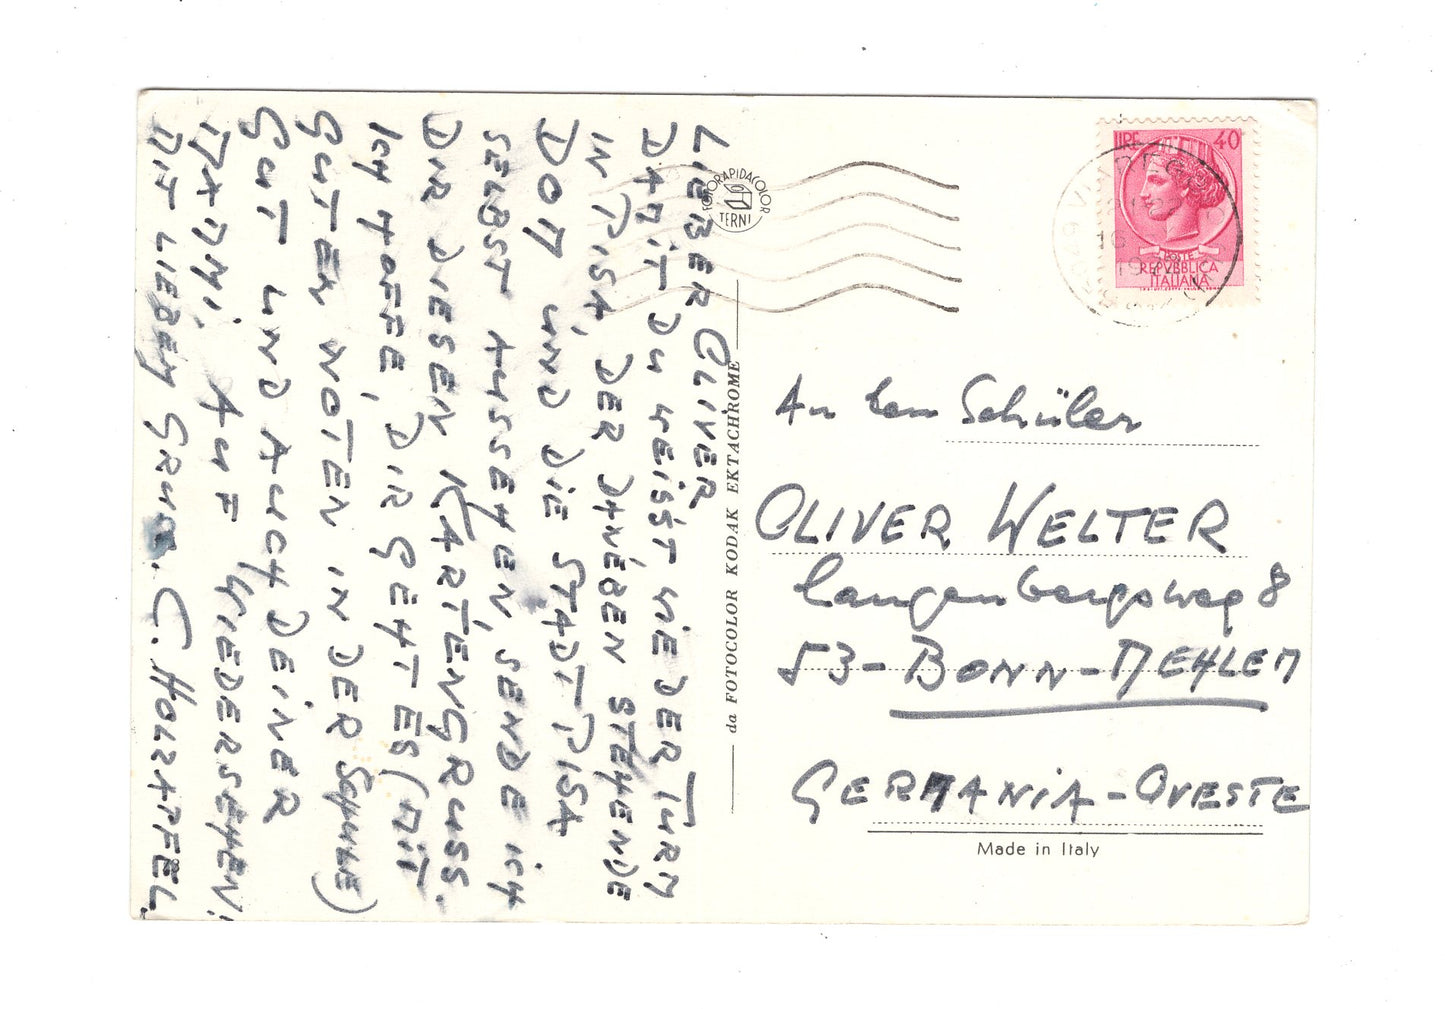 LIEBER OLIVER
DAMIT DU WEISST WIE DER TURM
IN PISA, DER DANEBEN STEHENDE
DOM UND DIE STADT PISA
SELBST AUSSEHEN SENDE ICH
DIR DIESEN KARTENGRUSS.
ICH HOFFE, DIR GEHT ES (MIT
GUTEN NOTEN IN DER SCHULE)
GUT UND AUCH DEINER
MAMI, AUF WIEDERSEHEN!
MIT LIEBEM GRUSS. C. HOLZAPFEL.
FOTORAPIDACOLOR
TERNI
da FOTOCOLOR KODAK EKTACHROME
LIRE 40
POSTE
REPVBBLICA
ITALIANA
VIAREGGIO
16
19
An den Schüler
OLIVER WELTER
Langenbergsweg 8
53-BONN-MEHLEM
GERMANIA-OVESTE
Made in Italy